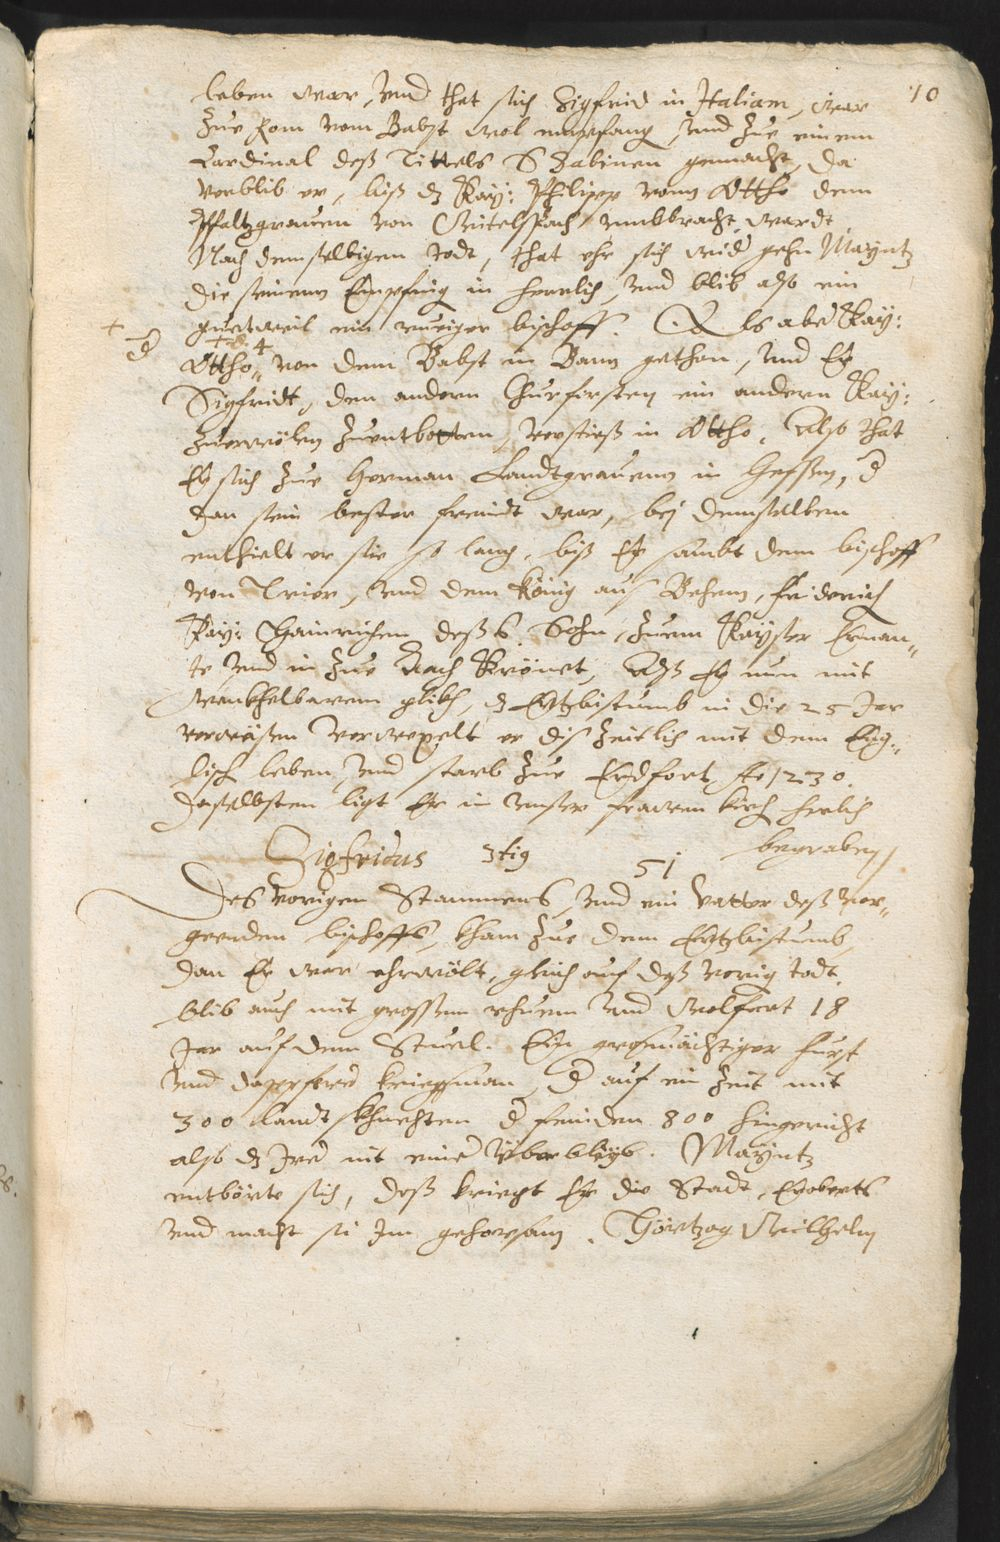 10
leben war, und that sich Sigfrid in Italiam, war
Zue Rom vom Babst wol empfang, und Zue einem
Cardinal deß Tittels S Sabinen gemacht, da
verblib er, biß dz Kay: Philipp vom Ottho dem
Pfaltzgraven von Witelspach umbbracht wardt,
Nach demselbigen todt, that ehr sich wid gehn Mayntz
die seinenn Empfing in herrlich, und blib also ein
guetweil ein ruwiger bischoff. Als aber Kay:
+ d
Ottho 4 von dem Babst in Bann gethan, und Er
Sigfridt, den andern Churfirsten ein andern Kay:
Zuerwölen Zuentbotten, verstieß in Ottho, Also that
Er sich Zue Herman Landtgravenn in Hessen, d
dan sein bester freindt war, bej demselben
enthielt er sie so lang, biß Er sambt dem bischoff
von Trier, und dem König aus Behem, Friderich
Kay: Hainrichen deß 6 Sohn, Zuem Kayser Ernan„
te und in Zue Aach Krönet, Alß Er nun mit
wankhelbarem glikh, dz Ertzbistumb in die 25 Jar
verwäßen verwexelt er dis Zeitlich mit dem Ewg„
lich leben, und starb Zue Erdfort, Ao 1230.
daselbsten ligt Er in unser frawen kirch herlich
begraben
Sigfridus 3tig 51
Des vorigen Stammens, und ein vatter deß vor„
geenden bischoffs, kham Zue dem Ertzbistumb,
dan Er war ehrwölt, gleich auf deß vorig todt.
blib auch mit grossem rhuem und Wolfart 18
Jar auf dem Stuel. Ein grosmächtiger Fürst
und dapferer kriegsman, d auf ein Zeit mit
300 landtskhnechten d feinden 800 hingericht
also dz Irer nit einer überblyb. Mayntz
entbörte sich, deß kriegt Er die Stadt, Eroberts
und macht sie Im gehorsam. Hörtzog Wilhelm